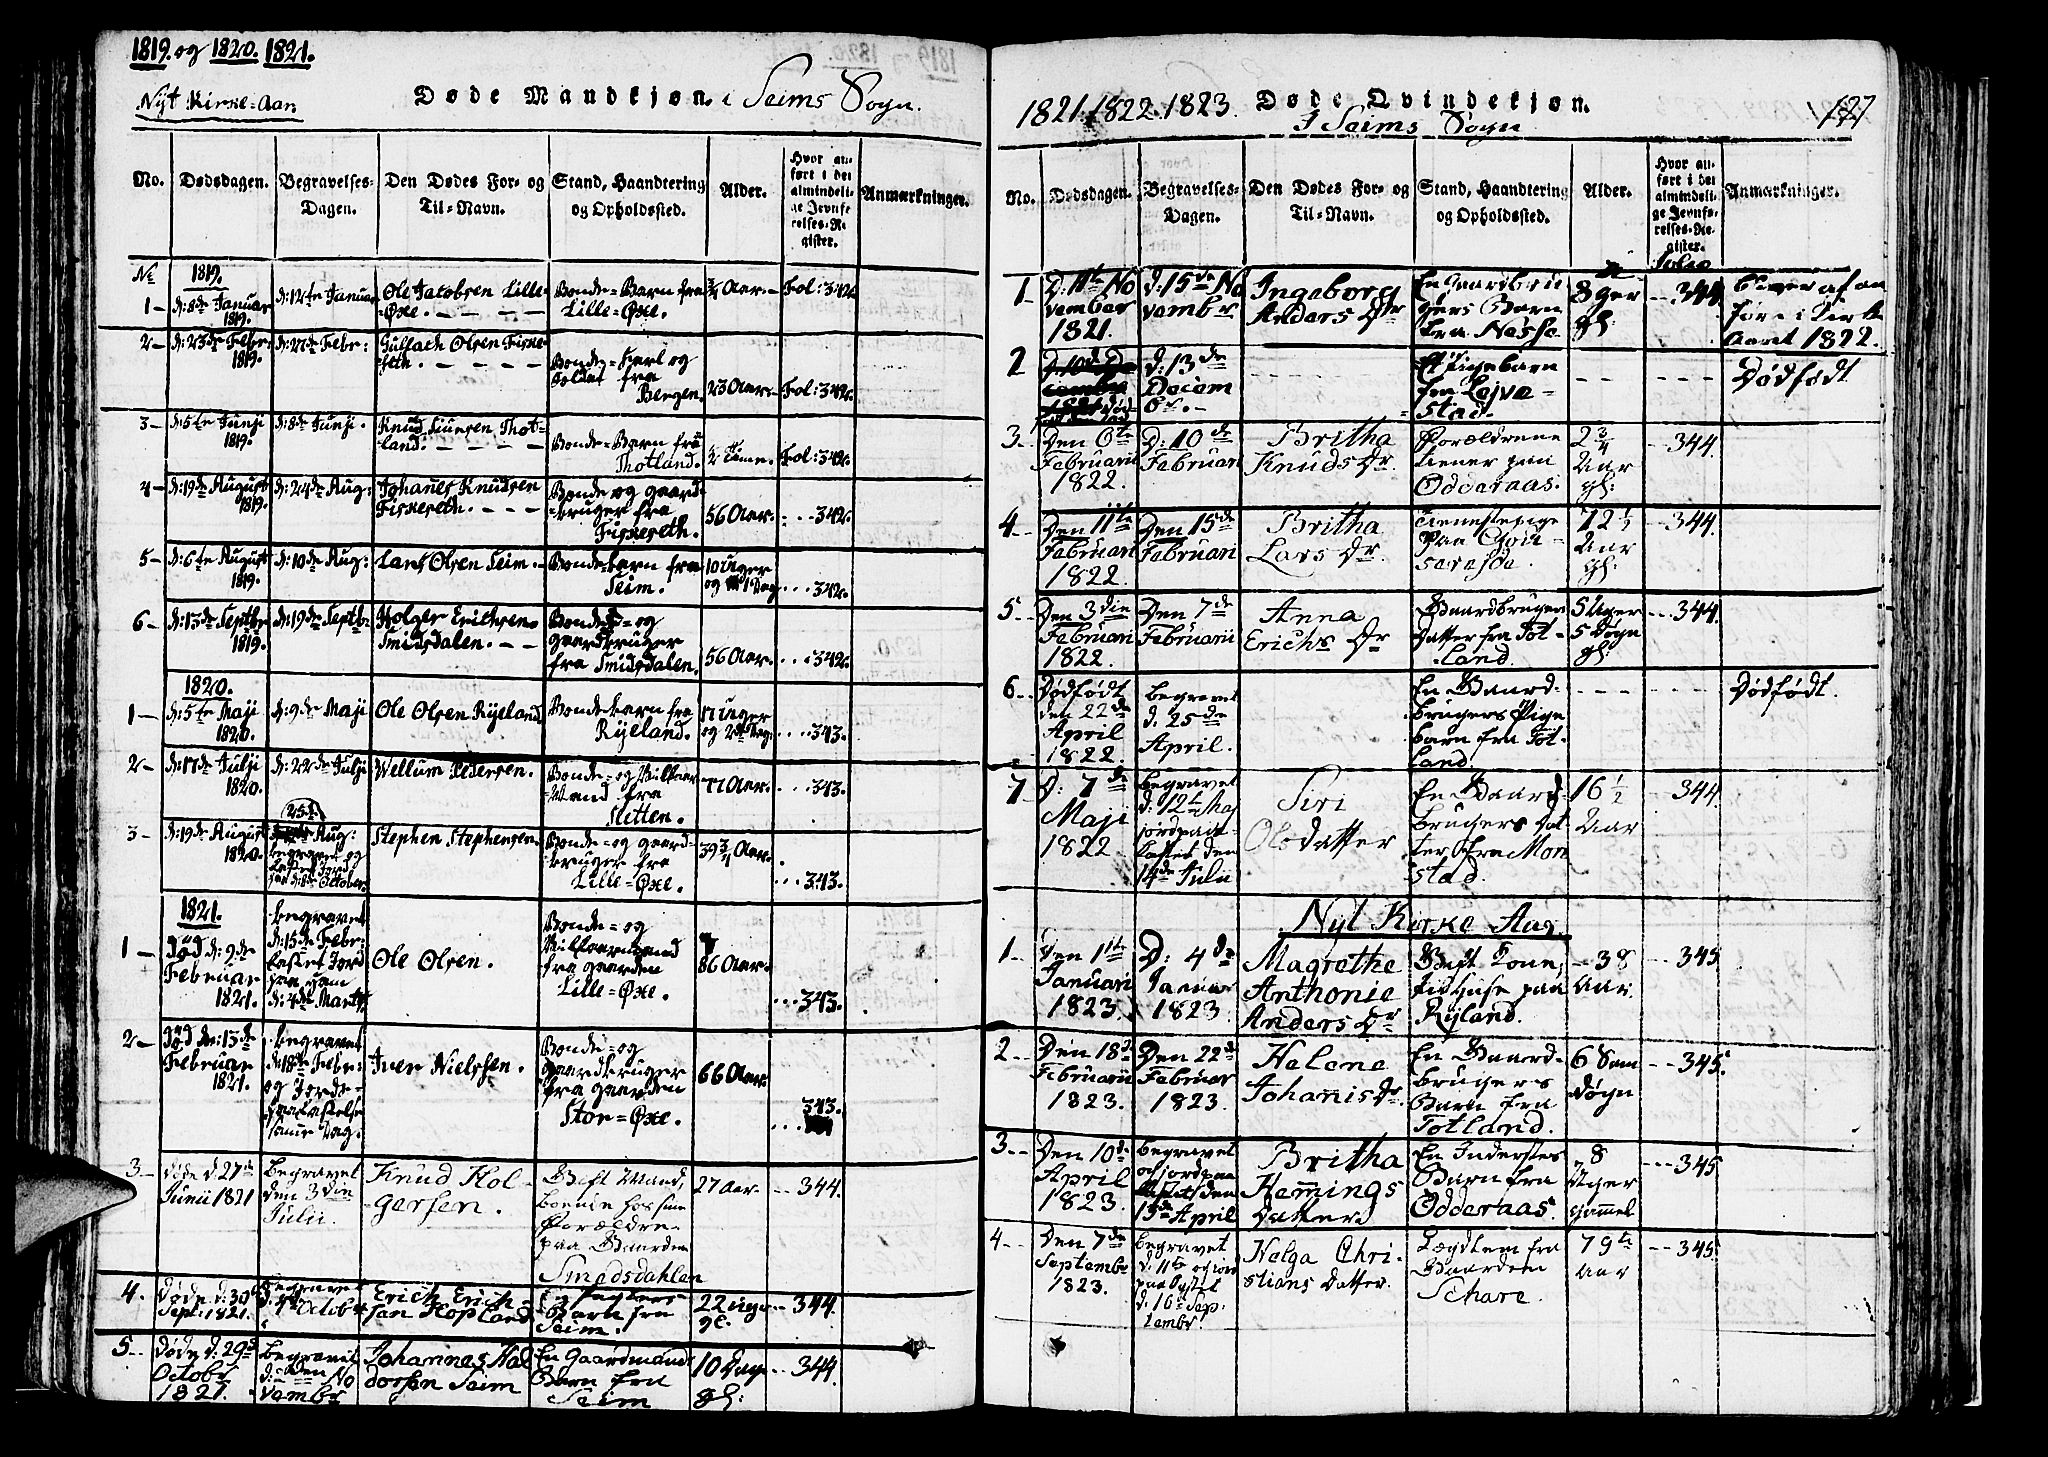 1819. og 1820. 1821.
Nyt Kirke-Aar
Døde Mandkjøn i Seims Sogn.
No.
Dødsdagen.
Begravelses-
Dagen.
Den Dødes For- og
Til-Navn.
Stand, Haandtering
og Opholdssted.
Alder.
Hvor an-
ført i det
almindeli-
ge Jevnfø-
relses-Re-
gister.
Anmærkninger.
No
1819.
1-
d: 8de Januar
1819.
d: 12te Januar
Ole Jacobsen Lille-
Øxe.
Bonde-Barn fra
Lille-Øxe.
3/4 Aar.
Fol: 342.
2-
d: 23de Febr:
1819.
d: 27de Febr:
Gullach Olsen Fiske-
seth.
Bonde-Karl og
Soldat fra
Bergen.
23 Aar.
Fol: 342.
3-
d: 5te Junji
1819.
d: 8de Junji.
Knud Siursen Thot-
land.
Bonde-Barn fra
Thotland.
1/2 Time.
Fol: 342.
4-
d: 19de August
1819.
d: 24de Aug:
Johanes Knudsen
Fiskeseth.
Bonde og gaard-
bruger fra
Fiskeseth.
56 Aar.
342.
5-
d: 6te August
1819.
d: 10de Aug:
Lars Olsen Seim.
Bonde-barn fra
Seim.
10 uger
og 1 Dag
342.
6-
d: 13de Septbr
1819.
d: 19de Septbr
Holger Erichsen
Smidsdalen.
Bonde- og
gaardbruger
fra Smidsdalen.
56 Aar.
342.
1820.
1-
d: 5te Maji
1820.
d: 9de Maji
Ole Olsen Ryeland
Bondebarn fra
Ryeland.
17 uger
og 2 Dag.
343.
2-
d: 17de Julji
1820.
d: 22de Julji
Wellum Pedersen.
Bonde- og Vilkaar-
Mand fra
Sletten.
77 Aar.
343.
3-
d: 19de August
1820.
Aug:
begravet og
October
Stephen Stephensen.
Bonde- og gaard-
bruger fra
Lille-Øxe.
39 3/4 Aar.
343.
1821.
1-
død d: 9de
Februar
1821.
begravet
d: 15de Febr:
kastet Jord
paa ham
d: 4de Marts
Ole Olsen.
Bonde- og
Vilkaarmand
fra gaarden
Lille-Øxe.
86 Aar.
343.
2-
død d: 13de
Februar
1821.
begravet
d: 18de Febr:
og Jorde-
paakastelse
samme Dag.
Iver Nielsen.
Bonde- og
Gaardbruger
fra gaarden
Stor-Øxe.
66 Aar.
343.
3-
Døde d: 27de
Junii 1821
Begravet
den 3die
Julii.
Knud Hol-
gersen.
Gift Mand,
boende hos sine
Forældre
paa Gaarden
Smedsdahlen
27 Aar.
344.
4.
Døde d: 30te
Sept: 1821.
Begravet
October
Erich Erich-
sen Hopland
Barn fra
Seim.
22 uger
gl.
344.
5.
Døde d: 29de
Octobr
1821.
Begravet
No
vembr
Johannes Hal
dorsen Seim
En Gaardmands
Barn fra
Seim
10 Dage
gl:
344.
1821. 1822. 1823.
Døde Qvindekjøn.
I Seims Sogn
127
No.
Dødsdagen.
Begravelses-
Dagen.
Den Dødes For- og
Til-Navn.
Stand, Haandtering
og Opholdssted.
Alder.
Hvor an-
ført i det
almindeli-
ge Jevnfø-
relses-Re-
gister.
folio
Anmærkninger.
1
D: 11te No
vember
1821.
d: 15de No
vembr
Ingeborg
Anders Dr
En Gaardbru
gers Barn
fra Nesse
8 ger
gl:
344
føre i Kirke
Aaret 1822.
2
d: 13de
Decem
br.
Et Pigebarn
fra Lejve-
stad.
Dødfødt
3.
Den 6te
Februarii
1822.
D: 10de
Februari
Britha
Knuds Dr
Forældrene
tiener paa
Odderaas.
2 3/4
Aar
gl:
344.
4.
Den 11te
Februari
1822.
Den 15de
Februari
Britha
Lars Dr
Tienestepige
paa
72 1/2
Aar
gl:
344.
5
Den 3die
Februari
1822.
Den 7de
Februarii
Anna
Erichs Dr
Gaardbruger
Datter fra Tot-
land.
5 Uger
5 Døgn
gl:
344.
6
Dødfødt
den 22de
April
1822.
begravet
d. 25de
April.
En Gaard-
brugers Pige
barn fra Tot-
land.
Dødfødt.
7
D: 7de
Maji
1822
begravet
d: 12te Maj
jordpaa-
kasted den
14de Julii
Siri
Olsdatter
En Gaard-
brugers Dat
ter fra Mon
stad.
16 1/2
Aar
344
Nyt Kirke Aar.
1.
Den 1ste
Januari
1823.
D: 4de
Januar
1823
Magrethe
Anthonie
Anders Dr
Gift Kone,
paa
Ryland.
38
Aar.
345
2
Den 18de
Februarii
1823.
Den 22de
Februar
1823.
Helene
Johanis Dr
En Gaard-
brugers
Barn fra
Totland.
6 Sam
Døgn
345.
3.
Den 10de
April
1823.
begravet
og jordpaa
kastet den
13de April
Britha
Hemings
Datter
En Inderstes
Barn fra
Odderaas.
8
Uger
gammel
345
4
Den 7de
Septembr
1823.
begravet
d: 11te og jord
paakastet
d. 16de Sep-
tembr.
Helga Chri-
stians Datter.
Lægdlem fra
Gaarden
Schare.
79te
Aar
345.